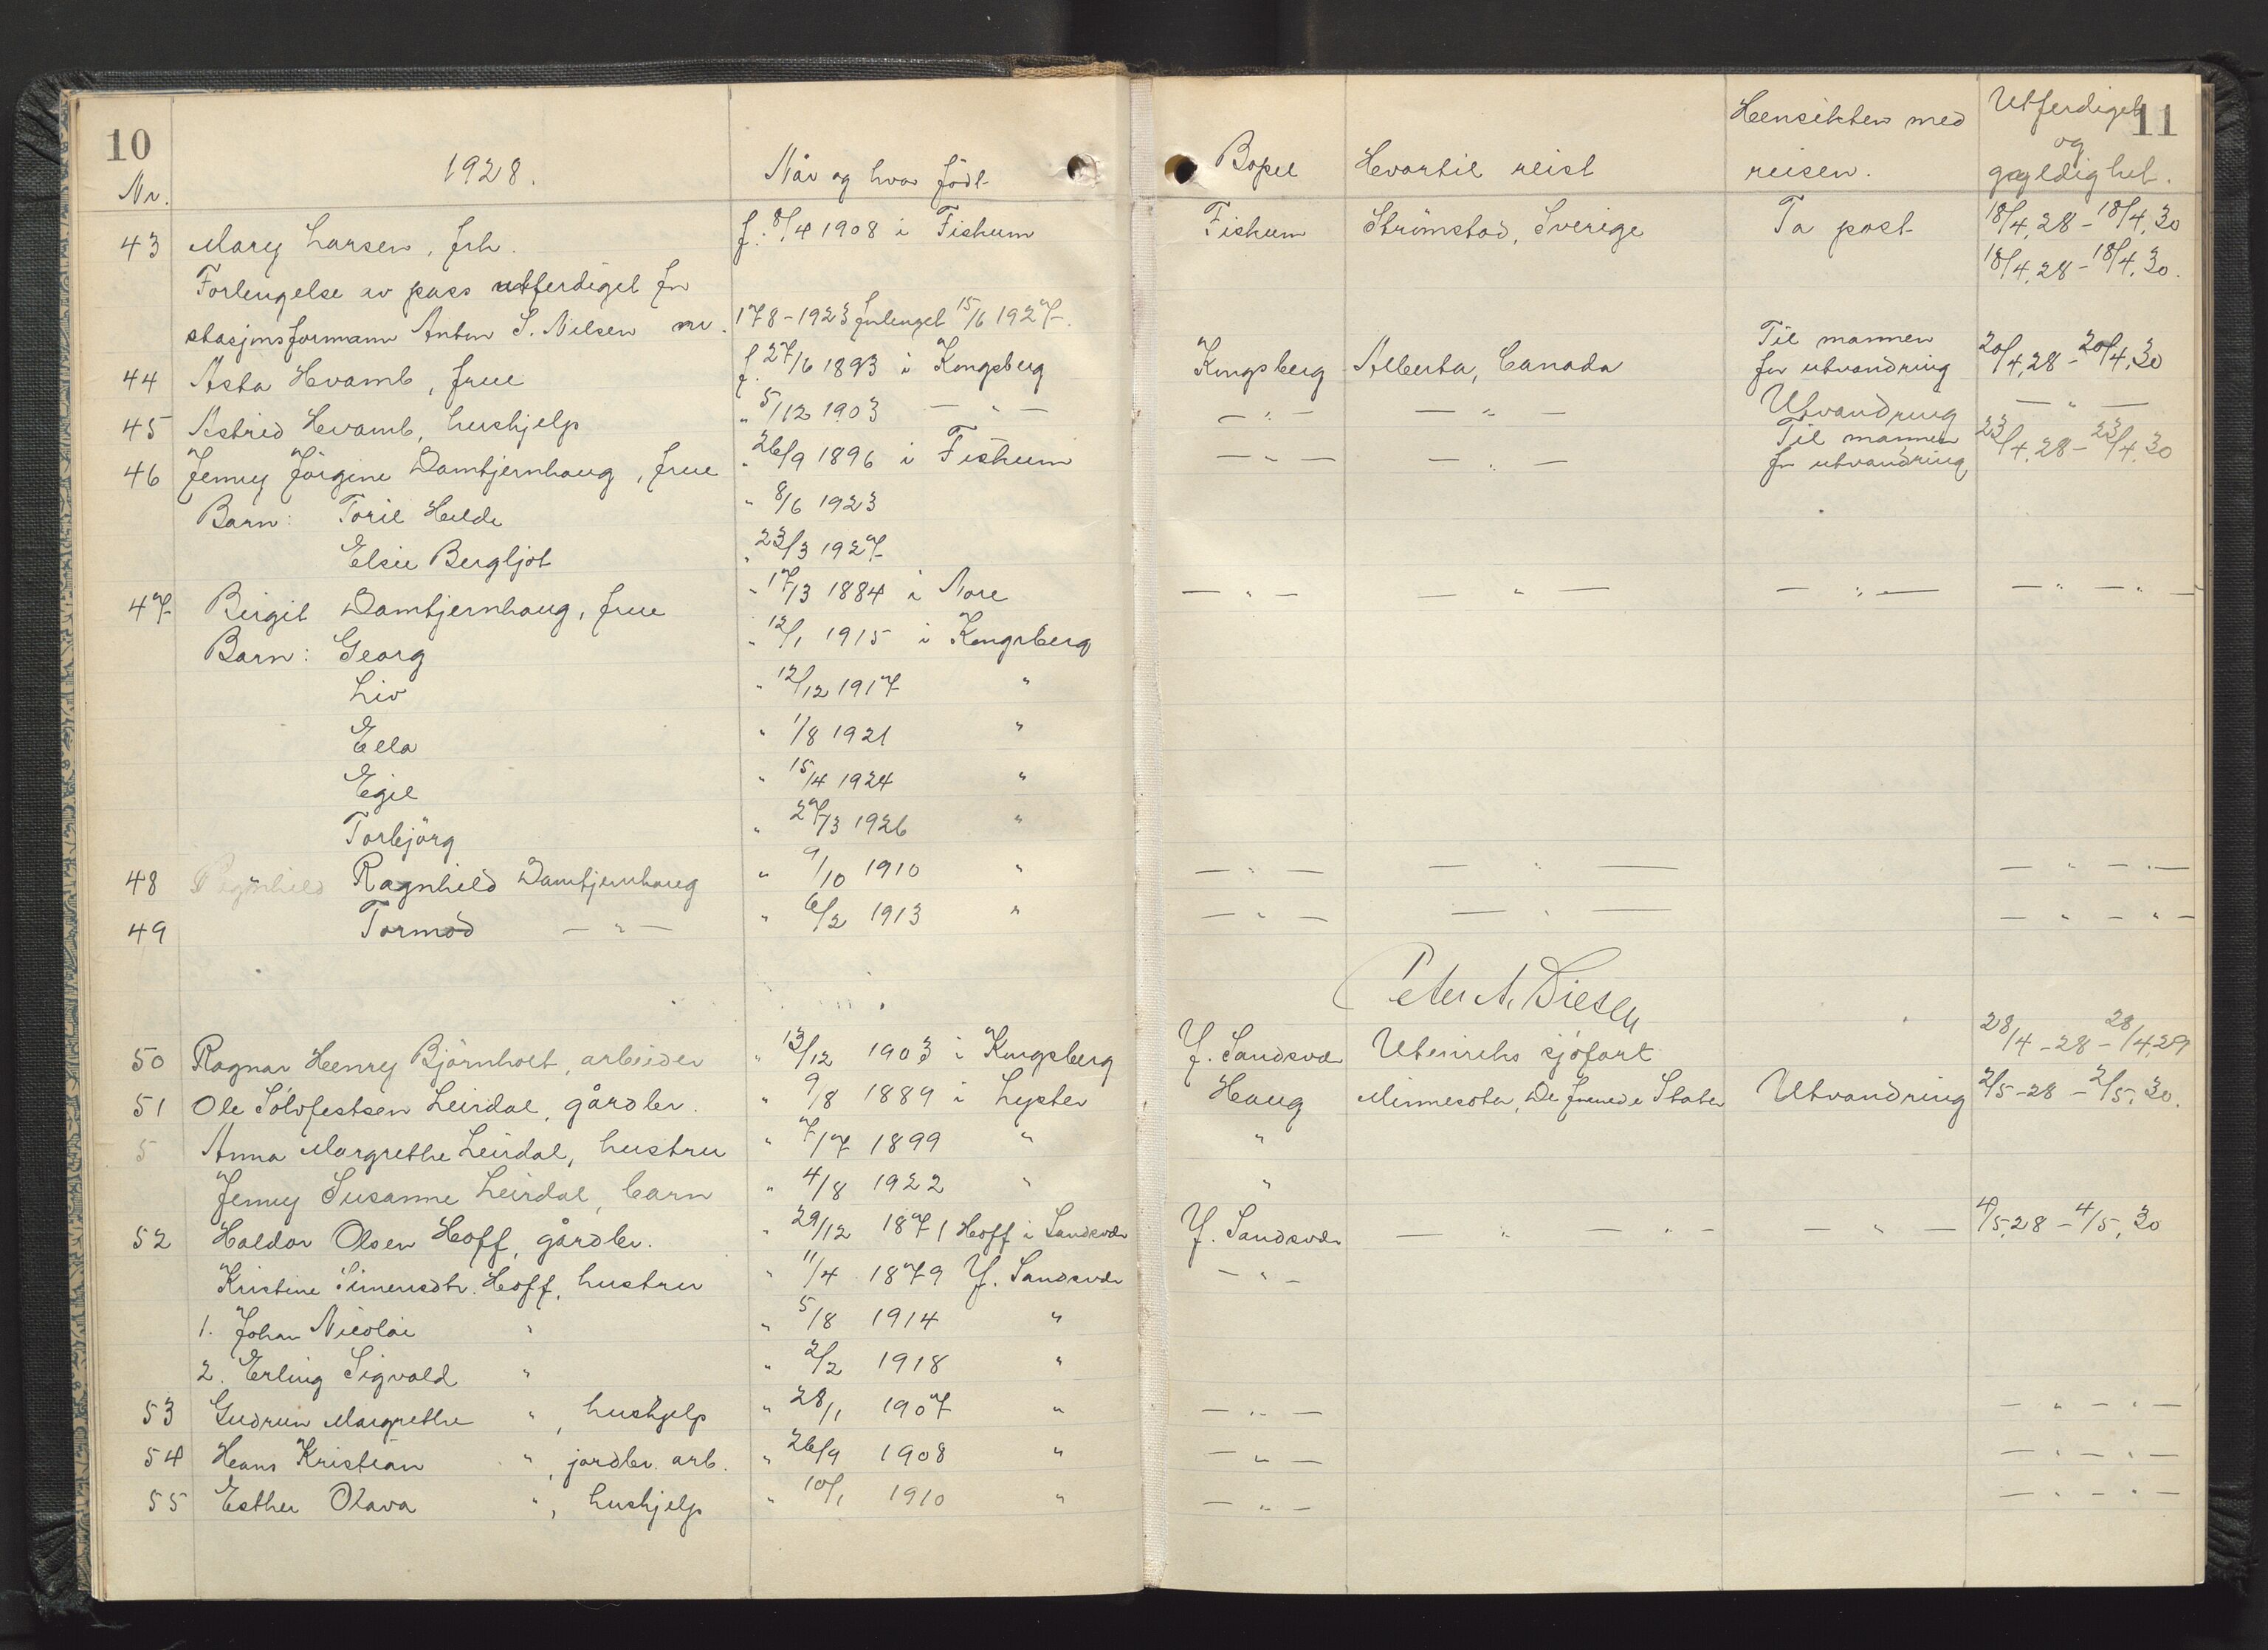 10
11
Nr. 1928. Når og hvor födt Bopel Hvortil reist Hensikten med reisen. Utferdiget og gyldighet.
43 Mary Larsen, frk. f. 8/4 1908 i Fiskum Fiskum Strömstad, Sverige Ta post 18/4.28 - 18/4.30
Forlengelse av pass utferdiget for 18/4.28 - 18/4.30.
stasjonsformann Anton S. Nilsen nr. 178-1923 forlenget 15/6 1927.
44 Asta Hvamb, frue f. 27/6 1893 i Kongsberg Kongsberg Alberta, Canada Til mannen for utvandring 20/4.28 - 20/4.30
45 Astrid Hvamb, hushjelp " 5/12 1903 — " — — " — — " — Utvandring — " —
46 Jenny Jörgine Damtjernhaug, frue " 26/9 1896 i Fiskum — " — — " — Til mannen for utvandring 23/4.28 - 23/4.30
Barn: Toril Helde " 8/6 1923
Elsie Bergljot " 23/3 1927
47 Birgit Damtjernhaug, frue " 17/3 1884 i Nore — " — — " — — " — — " — " —
Barn: Georg " 12/1 1915 i Kongsberg
Liv " 12/12 1917 "
Ella " 1/8 1921 "
Egil " 15/4 1924 "
Torbjörg " 27/3 1926 "
48 Ragnhild Ragnhild Damtjernhaug " 9/10 1910 " — " — — " — — " — " —
49 Tormod — " — " 6/2 1913 " — " — — " — — " — " —
Peter A. Diesen
50 Ragnar Henry Björnholt, arbeider " 13/12 1903 i Kongsberg Y. Sandsvær Utenriks sjöfart 28/4-28 - 28/4.29
51 Ole Sölvfestsen Leirdal, gårdbr. " 9/8 1889 i Lyster Haug Minnesota, De forenede Stater Utvandring 2/5-28 - 2/5.30.
5 Anna Margrethe Leirdal, hustru " 7/7 1899 " "
Jenny Susanne Leirdal, barn " 4/8 1922 " "
52 Haldor Olsen Hoff, gårdbr. " 29/12 1871 Hoff i Sandsvær Y. Sandsvær — " — " — — " — 4/5.28 - 4/5.30
Kristine Simensdtr. Hoff, hustru " 11/4 1879 Y. Sandsvær — " —
1. Johan Nicolai " " 5/8 1914 "
2. Erling Sigvald " " 2/2 1918 "
53 Gudrun Margrethe ", hushjelp " 28/1 1907 " — " — — " — " —
54 Hans Kristian ", jordbr. arb. " 26/9 1908 " — " — — " — " —
55 Esther Olava ", hushjelp " 10/1 1910 " — " — — " — " —